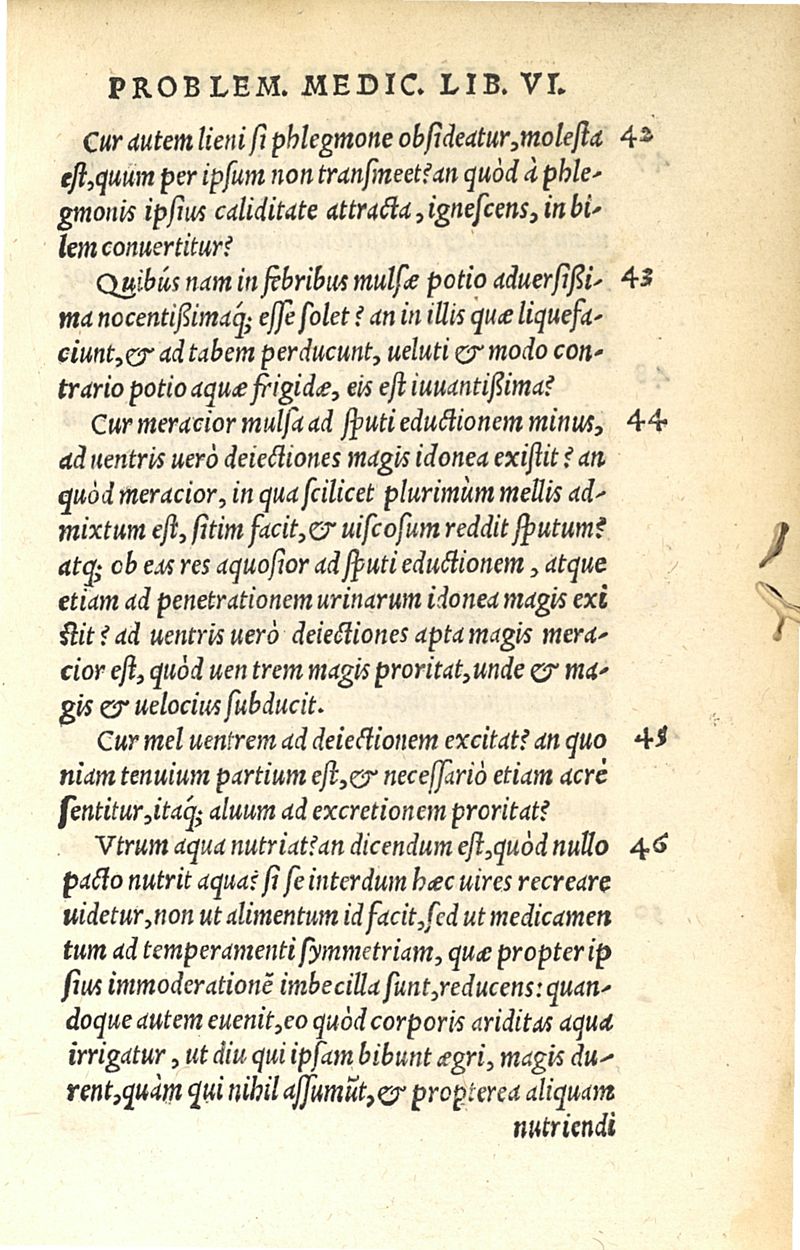 PROBLEM. MEDIC. LIB. VI.
Cur autem lieni si phlegmone obsideatur, molesta 42
est, quum per ipsum non transmeet? an quòd à phle-
gmonis ipsius caliditate attracta, ignescens, in bi-
lem conuertitur?
Quibús nam in febribus mulsæ potio aduersißi- 43
ma nocentißimaq́; esse solet? an in illis quæ liquefa-
ciunt, & ad tabem perducunt, ueluti & modo con-
trario potio aquæ frigidæ, eis est iuuantißima?
Cur meracior mulsa ad sputi eductionem minus, 44
ad uentris uerò deiectiones magis idonea existit? an
quòd meracior, in qua scilicet plurimùm mellis ad-
mixtum est, sitim facit, & uiscosum reddit sputum?
atq; ob eas res aquosior ad sputi eductionem, atque
etiam ad penetrationem urinarum idonea magis exi
stit? ad uentris uerò deiectiones apta magis mera-
cior est, quòd uen trem magis proritat, unde & ma-
gis & uelocius subducit.
Cur mel uentrem ad deiectionem excitat? an quo 45
niam tenuium partium est, & necessariò etiam acre
sentitur, itaq́; aluum ad excretionem proritat?
Vtrum aqua nutriat? an dicendum est, quòd nullo 46
pacto nutrit aqua? si se interdum hæc uires recreare
uidetur, non ut alimentum id facit, sed ut medicamen
tum ad temperamenti symmetriam, quæ propter ip
sius immoderationē imbecilla sunt, reducens: quan-
doque autem euenit, eo quòd corporis ariditas aqua
irrigatur, ut diu qui ipsam bibunt ægri, magis du-
rent, quàm qui nihil assumūt, & propterea aliquam
nutriendi